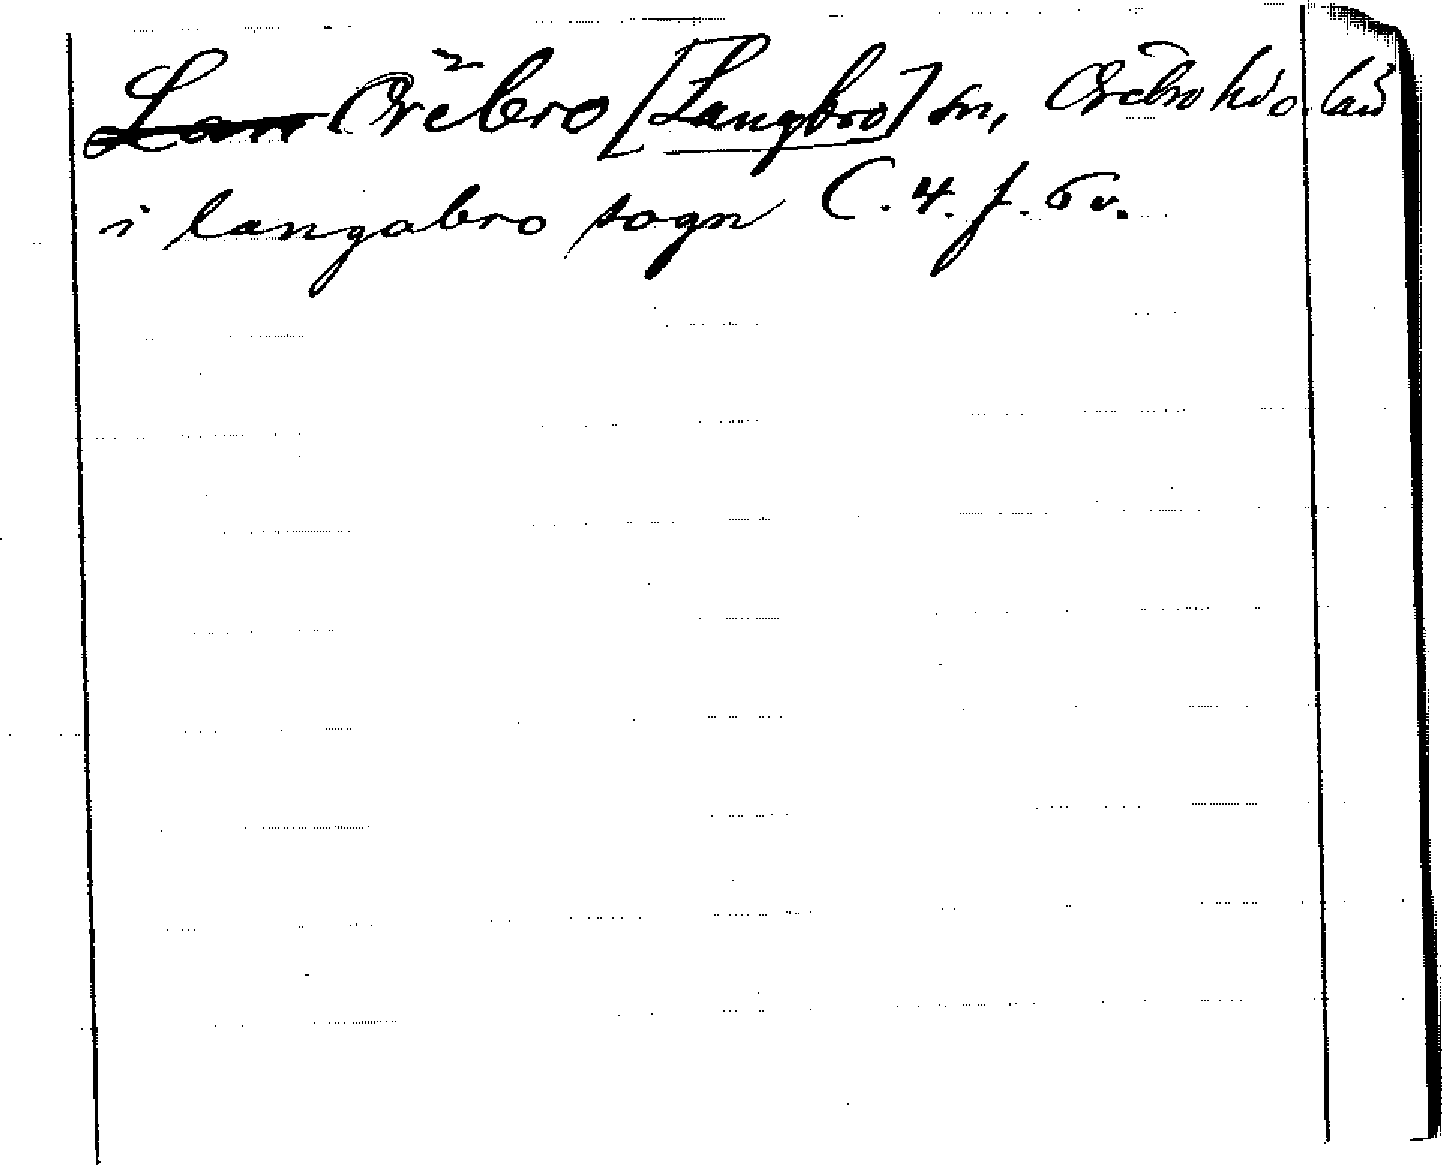 Örebro [Långbro] sn, Örebro hd o. län
i langabro sogn C. 4. f. 6 v.